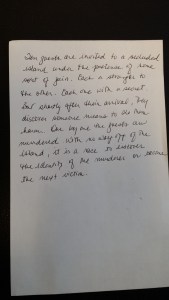 Ten guests are invited to a secluded
island under the pretense of some
sort of gain. Each a stranger to
the other. Each one with a secret
but shortly after their arrival, they
discover someone means to do them
harm. One by one the guests are
murdered with no way off of the
island, it is a race to discover
the identity of the murderer or become
the next victim.